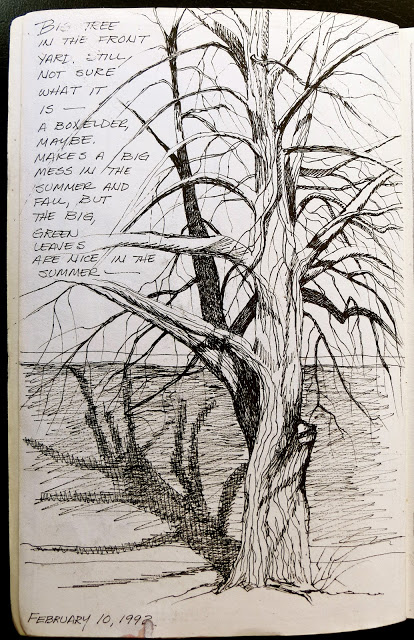 BIG TREE
IN THE FRONT
YARD. STILL
NOT SURE
WHAT IT
IS —
A BOXELDER,
MAYBE.
MAKES A BIG
MESS IN THE
SUMMER AND
FALL, BUT
THE BIG,
GREEN
LEAVES
ARE NICE IN THE
SUMMER —
FEBRUARY 10, 1992